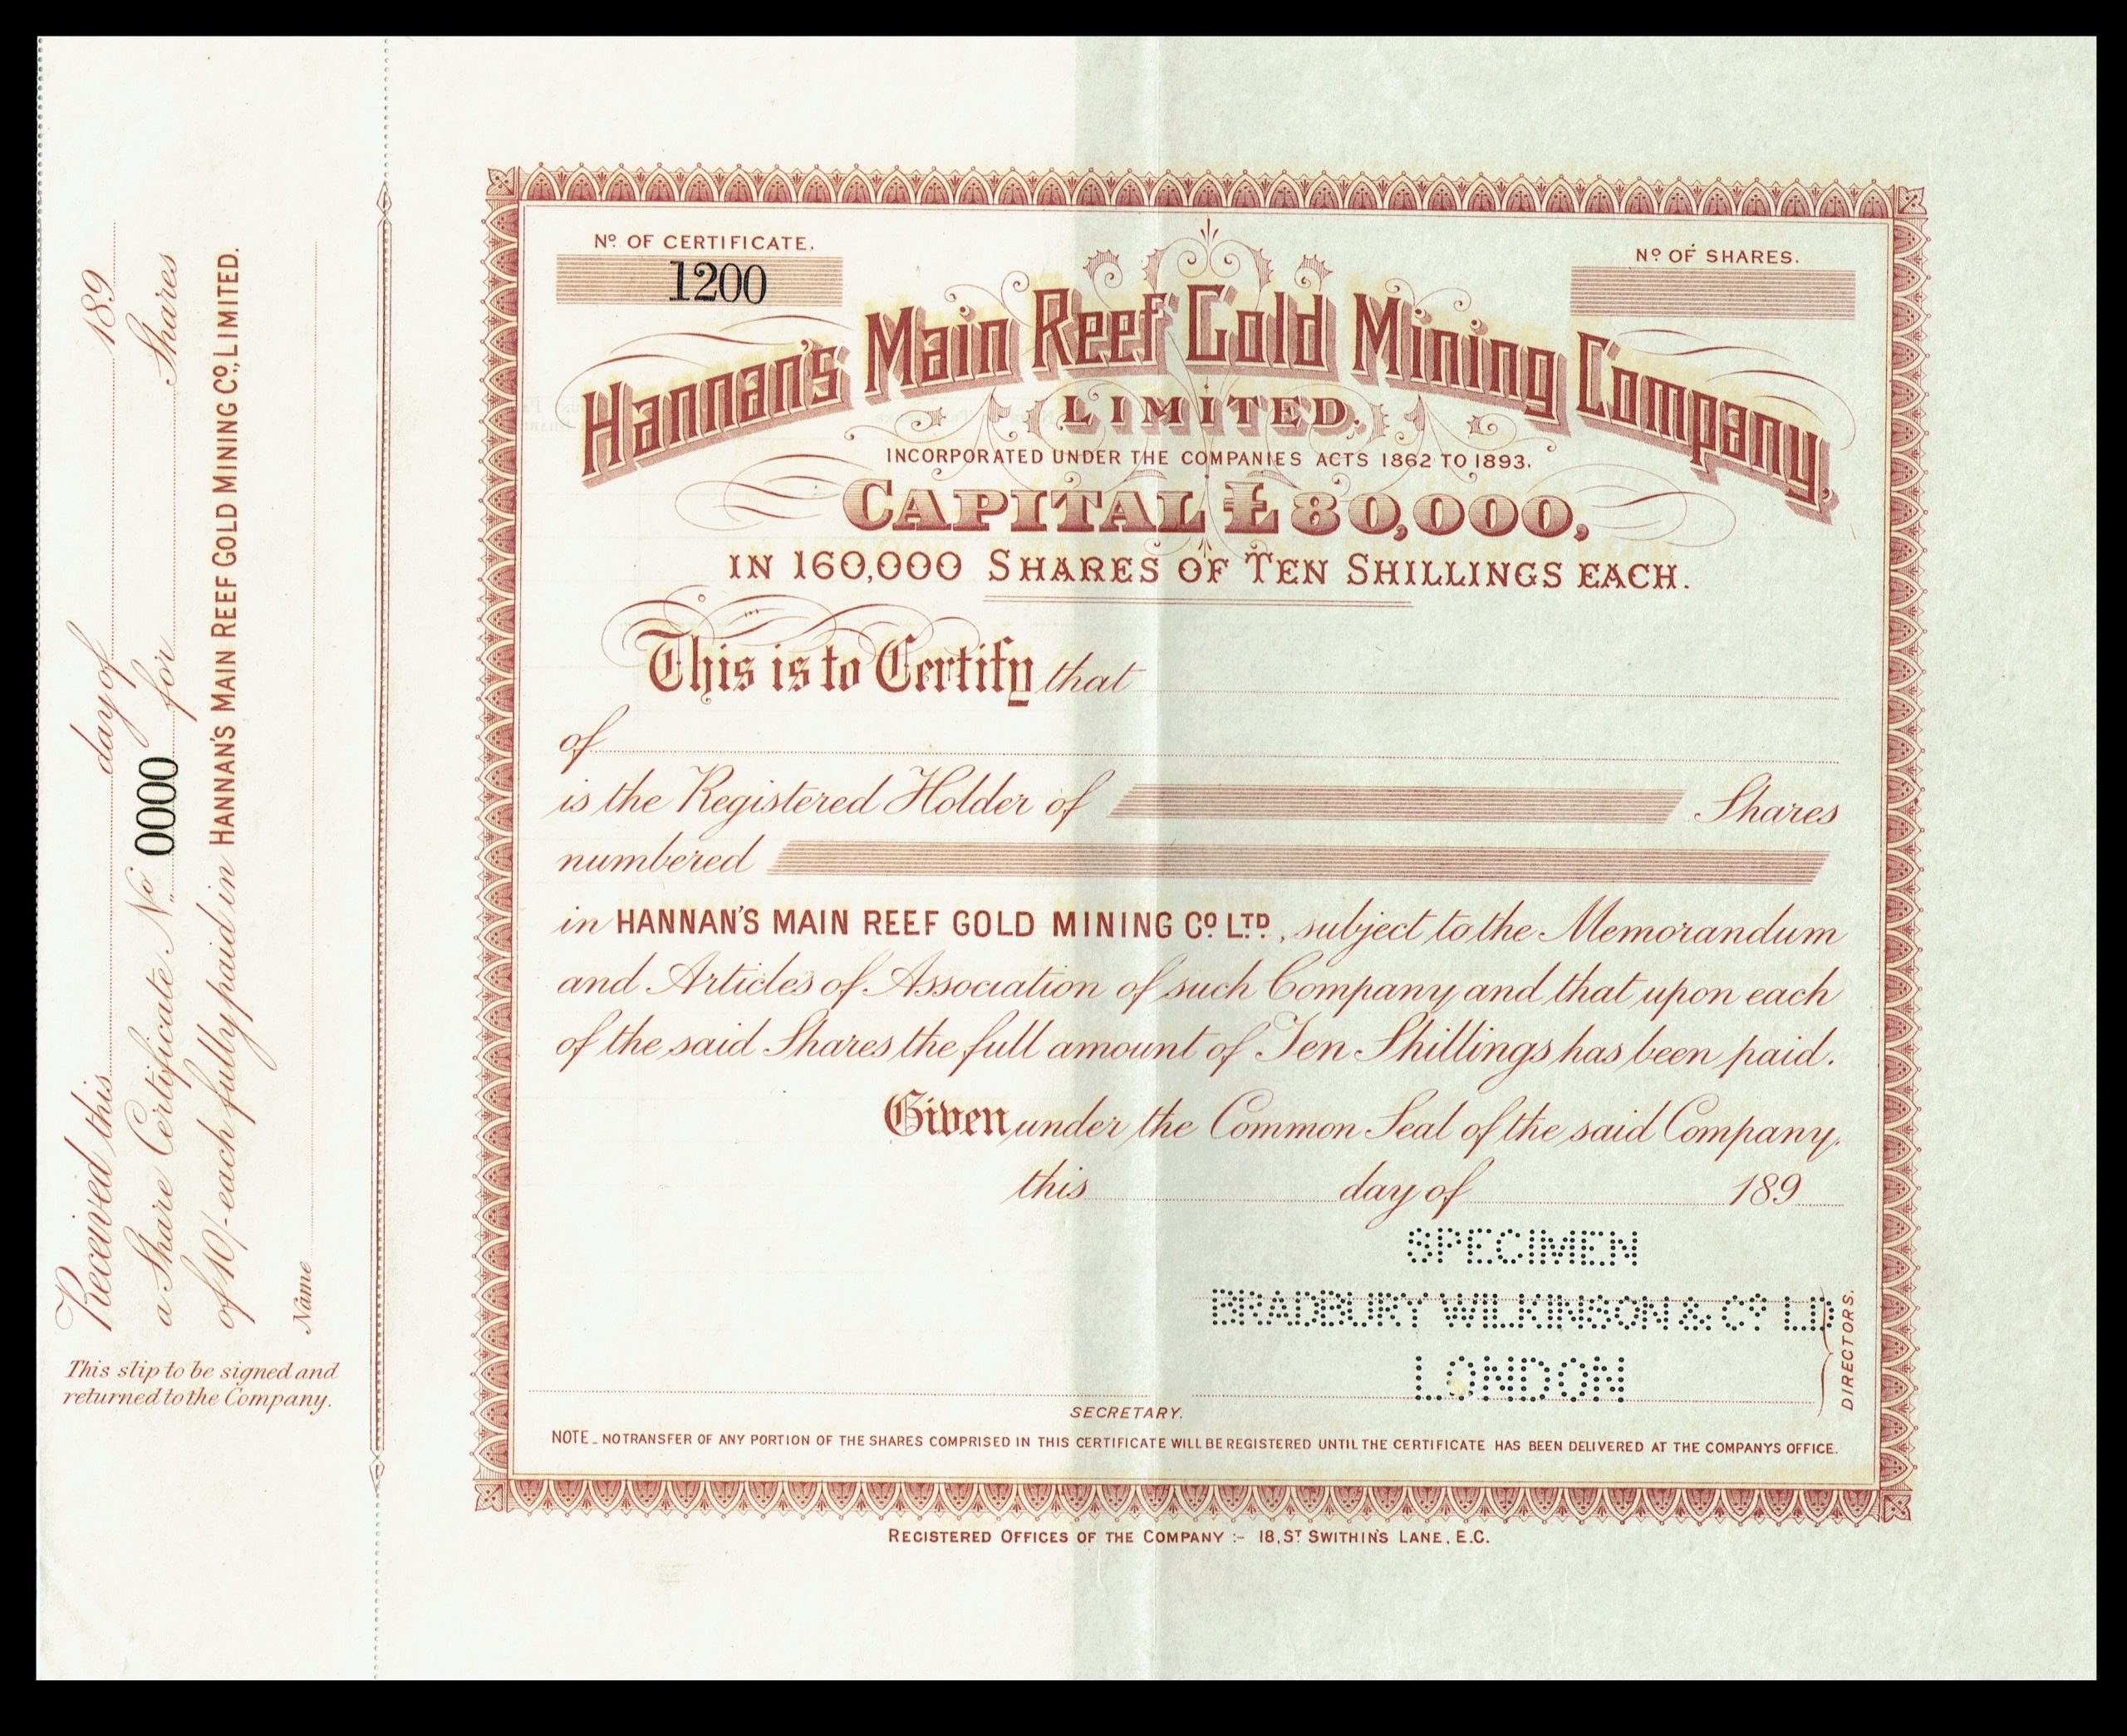 Received this day of 189
a Share Certificate No 0000 for Shares
of 10/- each fully paid in HANNAN'S MAIN REEF GOLD MINING Cº, LIMITED.
Name
This slip to be signed and
returned to the Company.
Nº OF CERTIFICATE.
1200
Nº OF SHARES.
Hannan's Main Reef Gold Mining Company,
LIMITED.
INCORPORATED UNDER THE COMPANIES ACTS 1862 TO 1893.
CAPITAL £80,000,
IN 160,000 SHARES OF TEN SHILLINGS EACH.
This is to Certify that
of
is the Registered Holder of Shares
numbered
in HANNAN'S MAIN REEF GOLD MINING Cº LTD, subject to the Memorandum
and Articles of Association of such Company and that upon each
of the said Shares the full amount of Ten Shillings has been paid.
Given under the Common Seal of the said Company,
this day of 189
SPECIMEN
BRADBURY WILKINSON & Cº LD
LONDON
DIRECTORS.
SECRETARY.
NOTE_ NO TRANSFER OF ANY PORTION OF THE SHARES COMPRISED IN THIS CERTIFICATE WILL BE REGISTERED UNTIL THE CERTIFICATE HAS BEEN DELIVERED AT THE COMPANYS OFFICE.
REGISTERED OFFICES OF THE COMPANY :- 18, ST SWITHIN'S LANE, E.C.